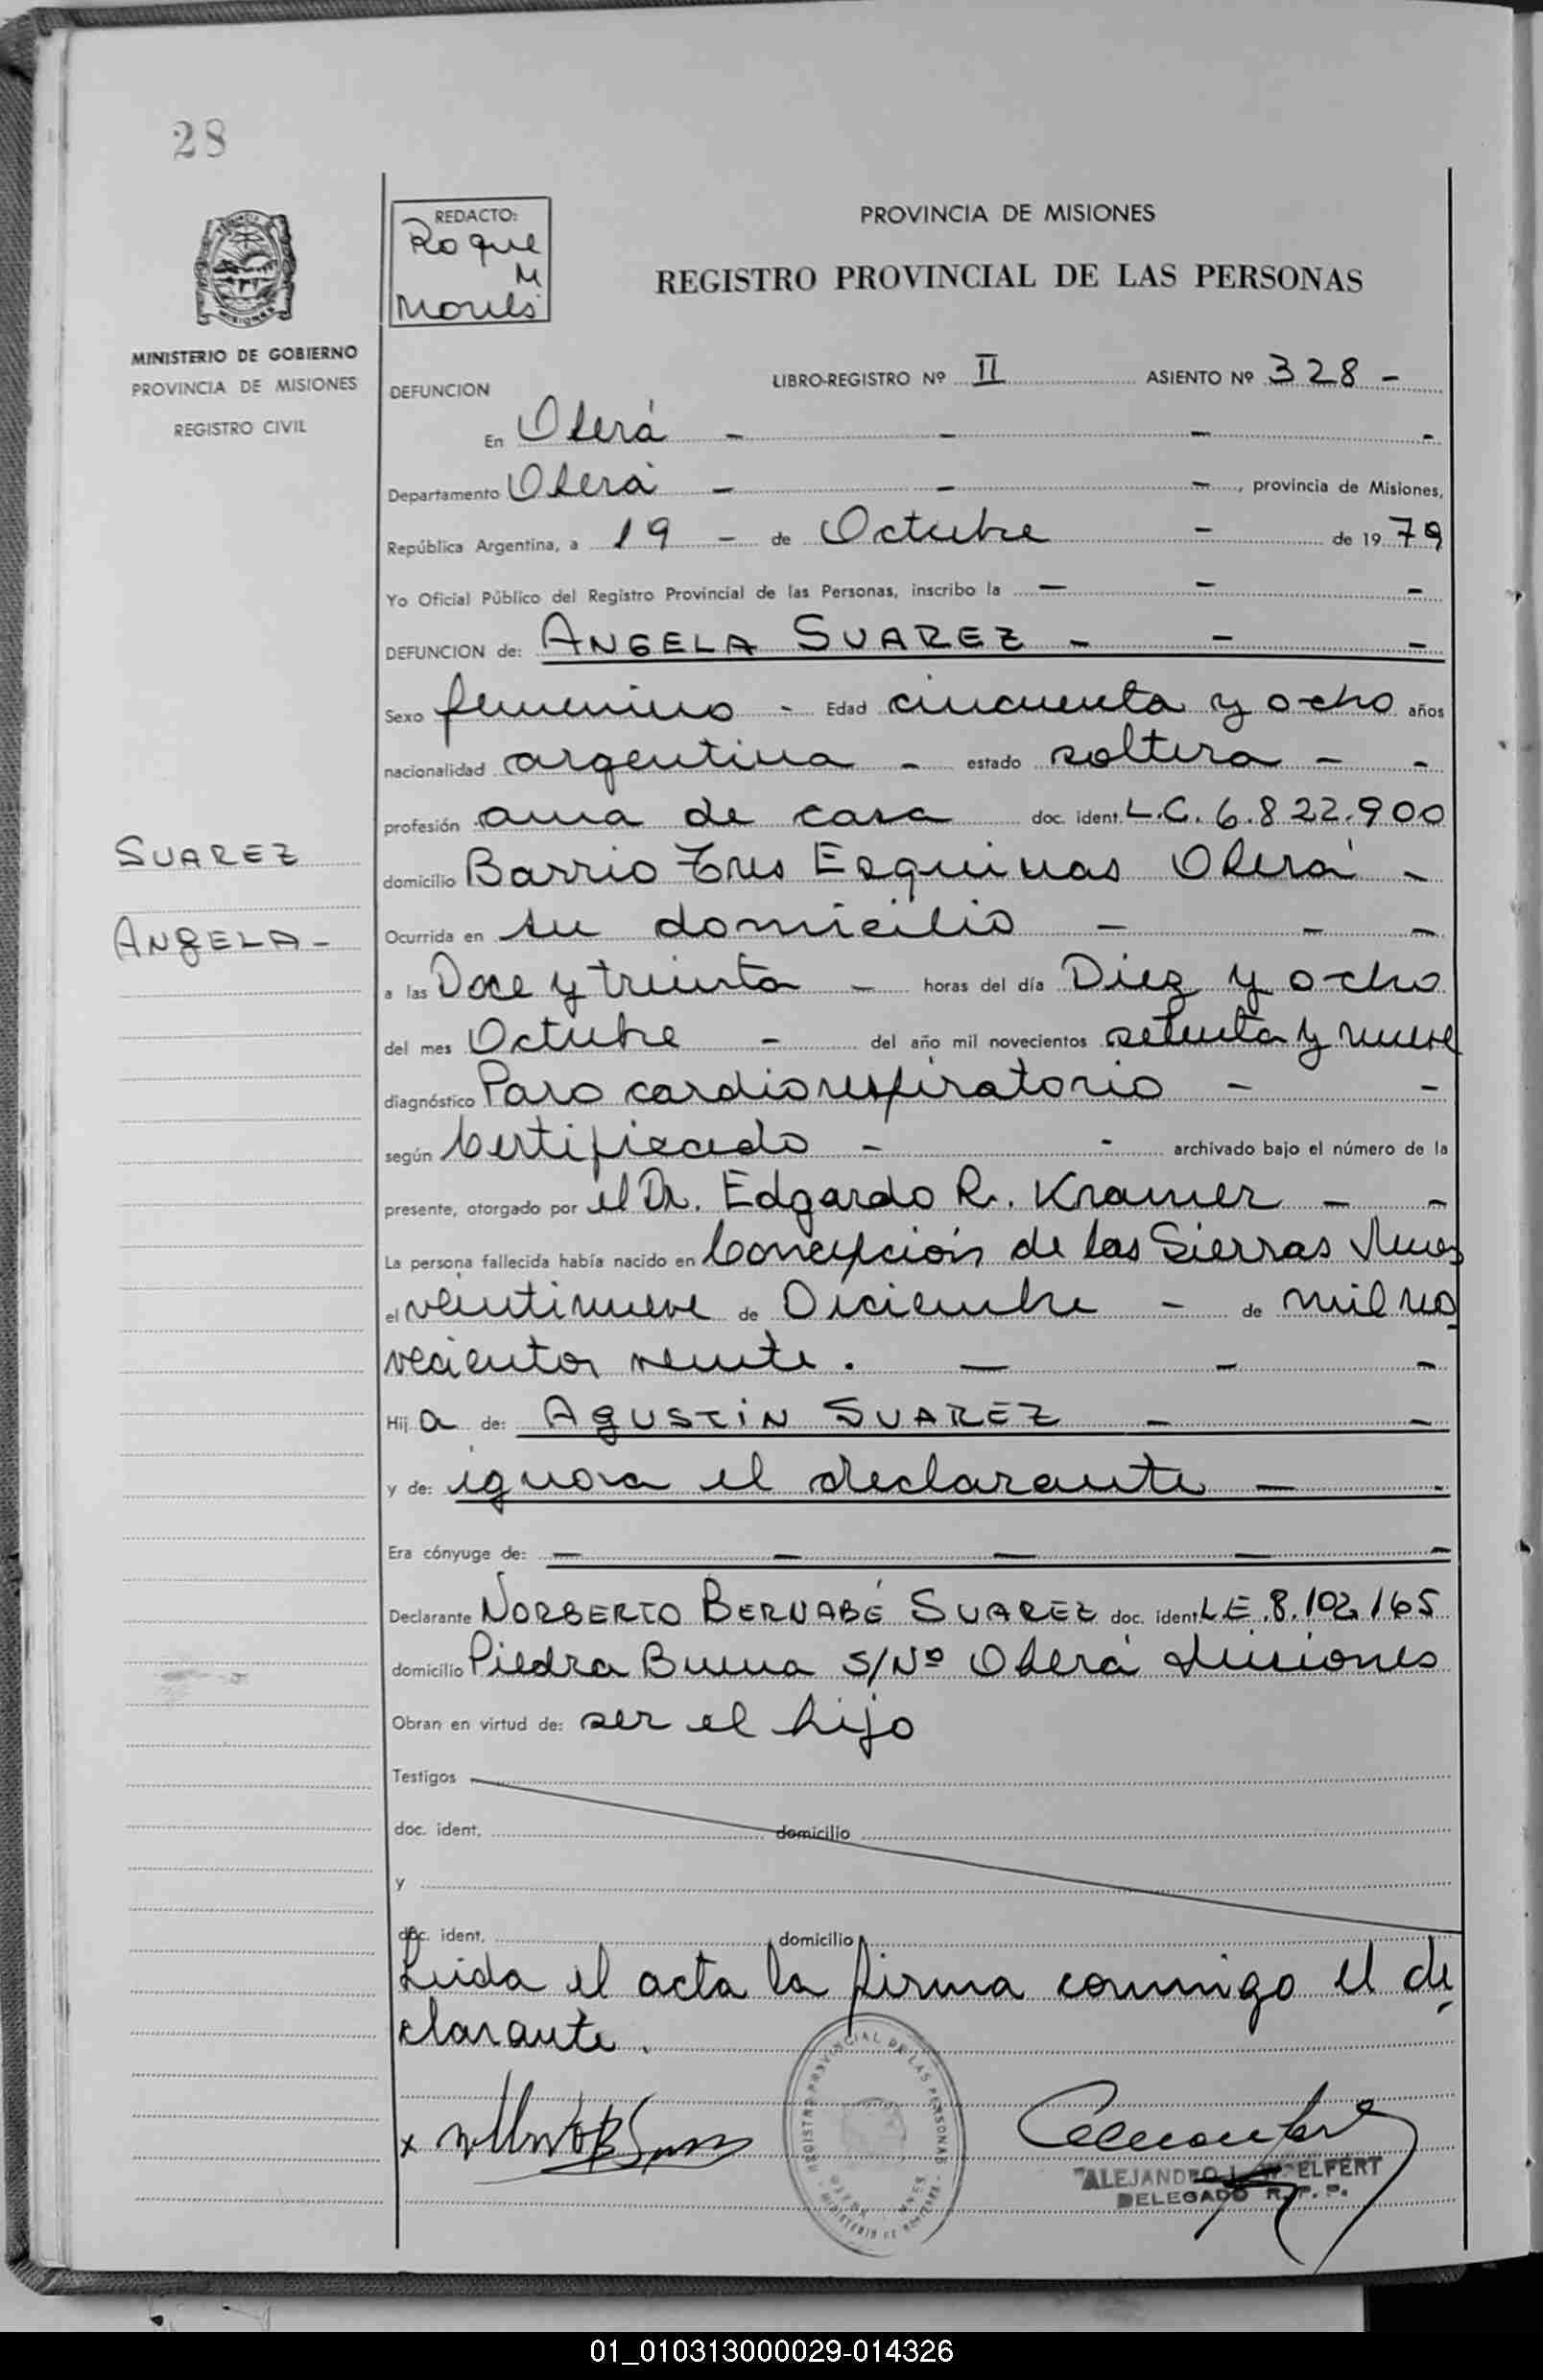 28
REDACTO:
Roque
M
MINISTERIO DE GOBIERNO
PROVINCIA DE MISIONES
REGISTRO CIVIL
PROVINCIA DE MISIONES
REGISTRO PROVINCIAL DE LAS PERSONAS
DEFUNCION LIBRO-REGISTRO Nº II ASIENTO Nº 328 -
En Oberá - - - -
Departamento Oberá - - - , provincia de Misiones,
República Argentina, a 19 - de Octubre - de 1979
Yo Oficial Público del Registro Provincial de las Personas, inscribo la - - -
DEFUNCION de: ANGELA SUAREZ - - -
Sexo femenino - Edad cincuenta y ocho años
nacionalidad argentina - estado soltera - -
profesión ama de casa doc. ident. L.C. 6.822.900
SUAREZ
ANGELA -
domicilio Barrio Tres Esquinas Oberá -
Ocurrida en su domicilio - - -
a las Doce y treinta - horas del día Diez y ocho
del mes Octubre - del año mil novecientos setenta y nueve
diagnóstico Paro cardiorespiratorio - -
según Certificado - - archivado bajo el número de la
presente, otorgado por el Dr. Edgardo R. Kramer - -
La persona fallecida había nacido en Concepción de las Sierras
el veintinueve de Diciembre - de mil no
vecientos veinte. - - -
Hija de: AGUSTIN SUAREZ - -
y de: ignora el declarante - -
Era cónyuge de: - - - - -
Declarante NORBERTO BERNABÉ SUAREZ doc. ident. L.E. 8.102.165
domicilio Piedra Buena S/Nº Oberá Misiones
Obran en virtud de: ser el hijo
Testigos
doc. ident. domicilio
y
doc. ident. domicilio
Leida el acta la firma conmigo el de
clarante.
x
REGISTRO PROVINCIAL DE LAS PERSONAS
ALEJANDRO
DELEGADO R. P. P.
01_010313000029-014326